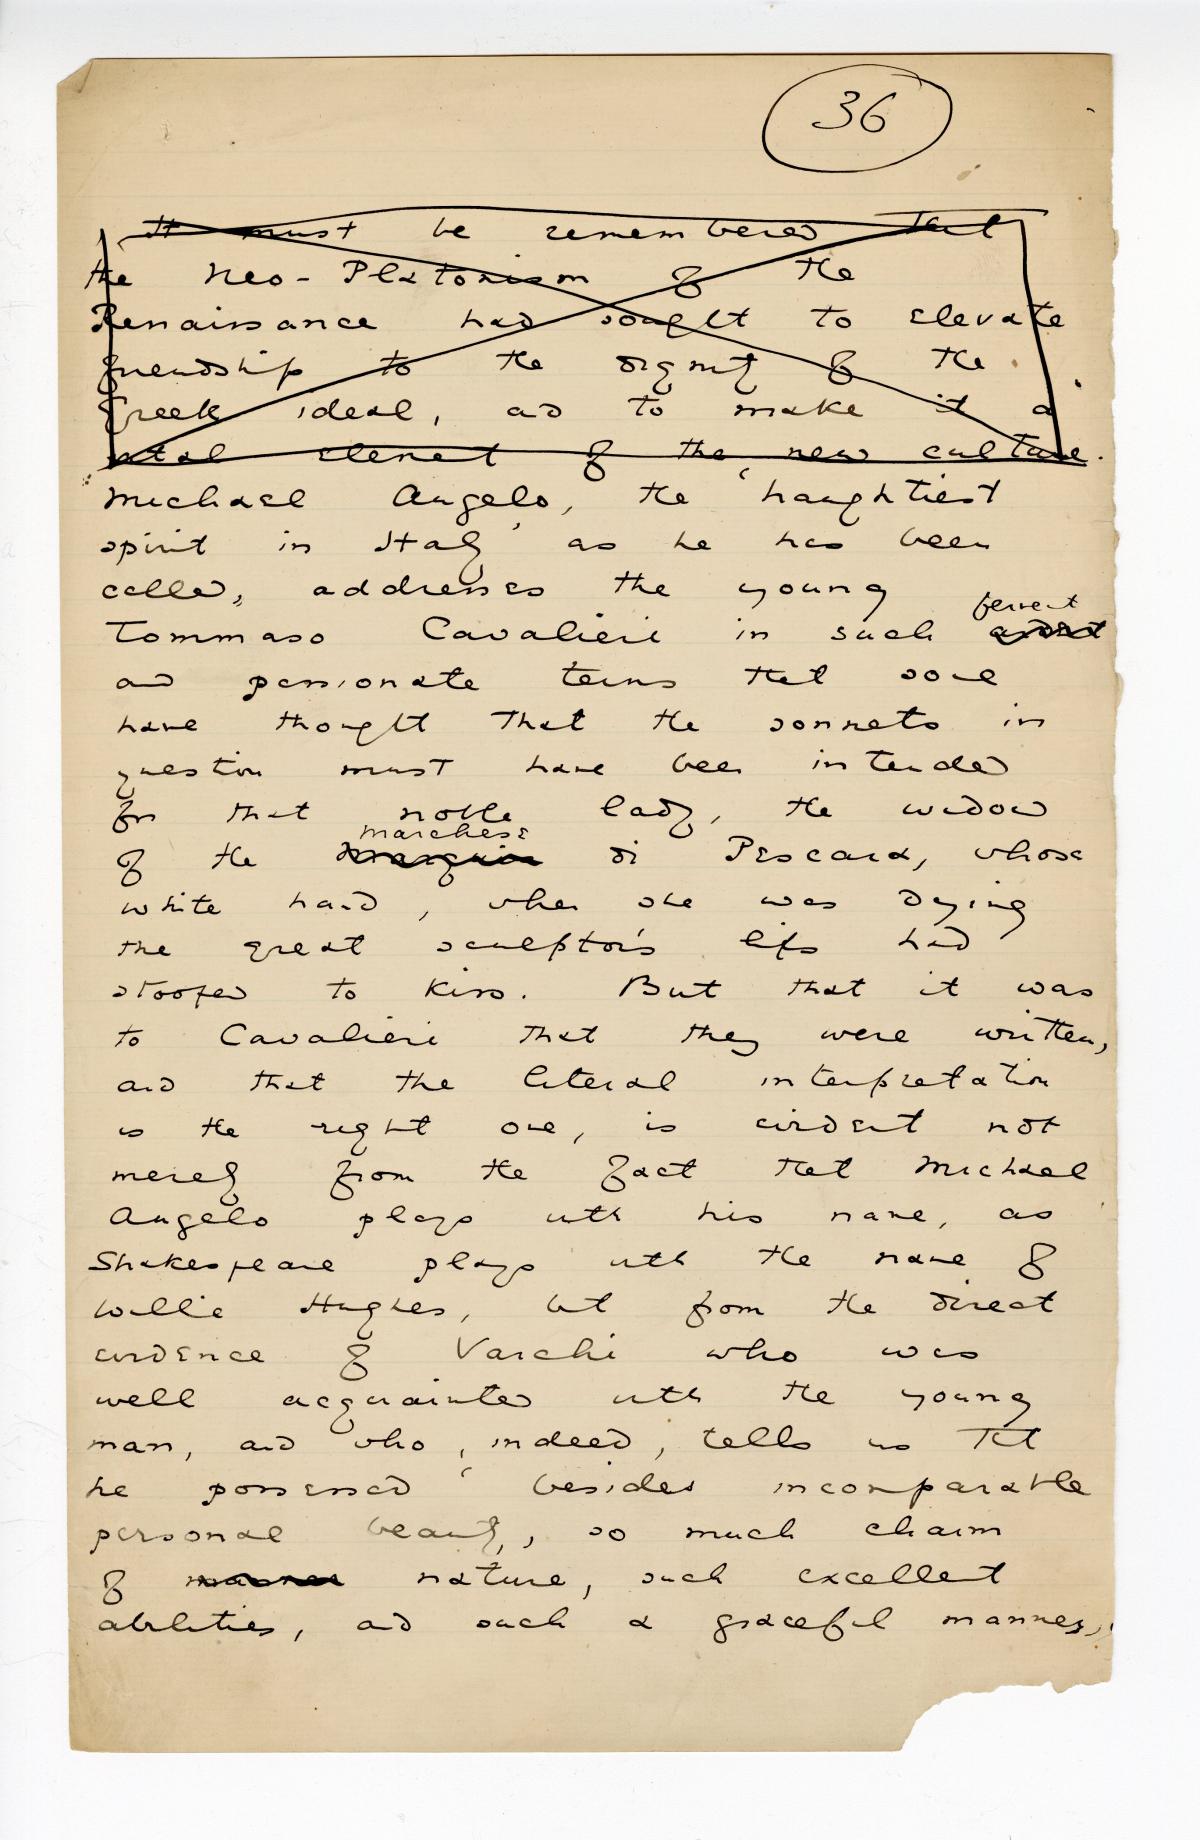 36
It must be remembered that
the Neo-Platonism of the
Renaissance had sought to elevate
friendship to the dignity of the
Greek ideal, and to make it a
vital element of the new culture.
Michael Angelo, the 'haughtiest
spirit in Italy' as he has been
called, addresses the young
fervent
Tommaso Cavalieri in such ardent
and passionate terms that some
have thought that the sonnets in
question must have been intended
for that noble lady, the widow
Marchese
of the Marquis di Pescara, whose
white hand, when she was dying
the great sculptor's lips had
stooped to kiss. But that it was
to Cavalieri that they were written,
and that the literal interpretation
is the right one, is evident not
merely from the fact that Michael
Angelo plays with his name, as
Shakespeare plays with the name of
Willie Hughes, but from the direct
evidence of Varchi who was
well acquainted with the young
man, and who, indeed, tells us that
he possessed 'besides incomparable
personal beauty, so much charm
of manner nature, such excellent
abilities, and such a graceful manner,